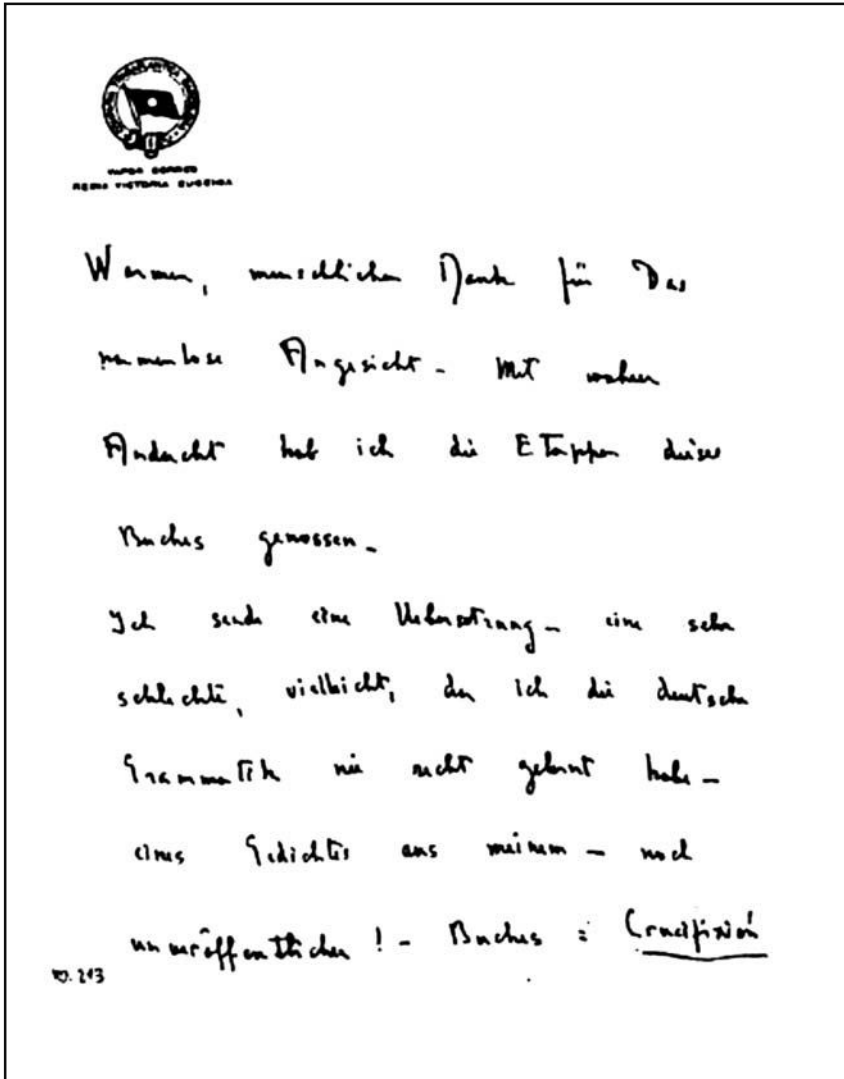 VAPOR CORREO
REINA VICTORIA EUGENIA
Warmen, menschlichen Dank für Das
namenlose Angesicht – Mit wahrer
Andacht hab ich die Etappen dieses
Buches genossen –
Ich sende eine Uebersetzung – eine sehr
schlechte, vielleicht, da ich die deutsche
Grammatik nie recht gelernt habe –
eines Gedichtes aus meinem – noch
unveröffentlichen ! – Buches : Crucifixión
213